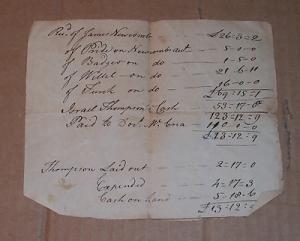 Recd of James Newcomb — £26=3=2
of Pride on Newcombs act — 5-0-0
of Badger on do — 1-0-0
of Willet on do — 21-6-11
of on do — 16-0-0
£69-15-1
Israel Thompson Cash — 53-17-8
123-12-9
Paid to 110-0-0
£13=12=9
Thompson Laid out — 2=17=0
Expended — 4=17=3
Cash on hand — 5-18-6
£13=12=9